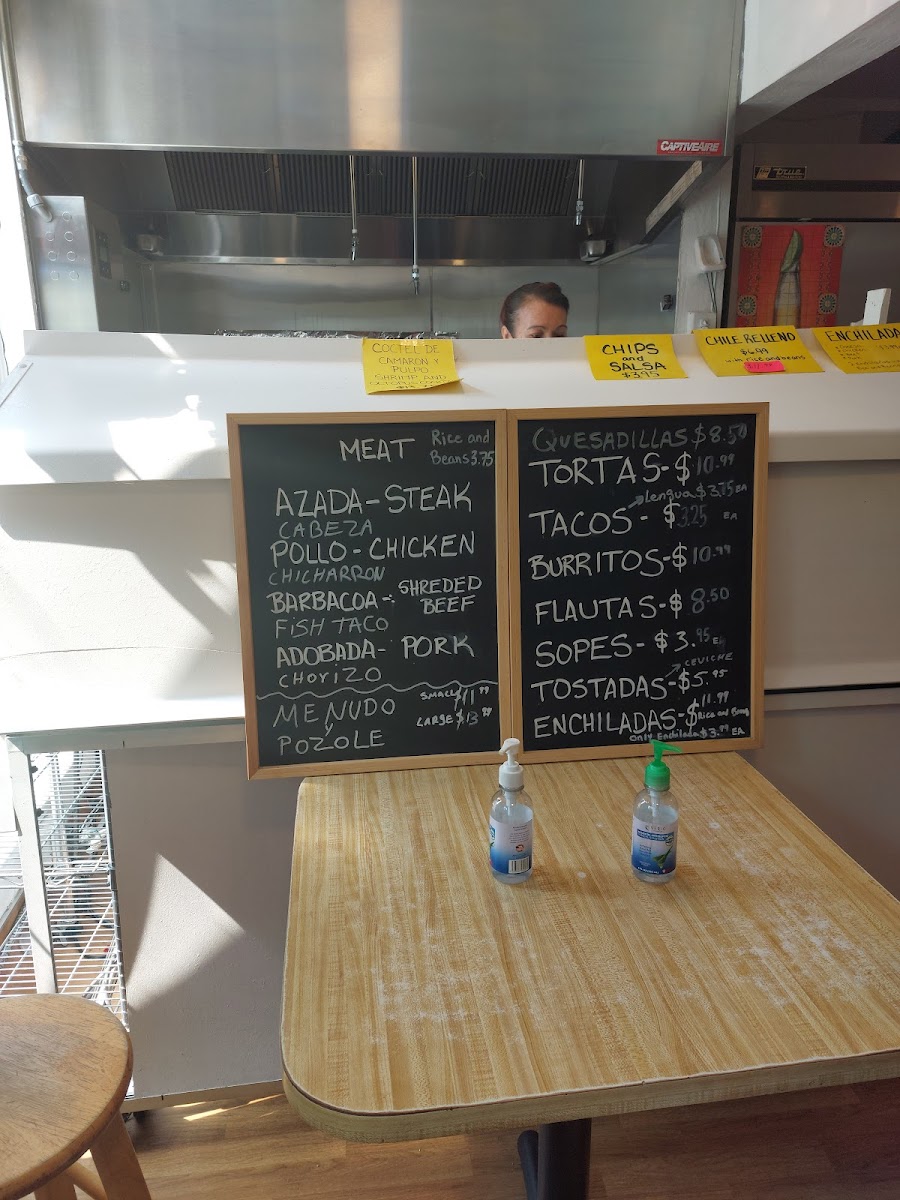 CAPTIVEAIRE
True
COCTEL DE
CAMARON Y
PULPO
SHRIMP AND
CHIPS
and
SALSA
$3.95
CHILE RELLENO
$6.99
with rice and beans
ENCHILADA
MEAT
Rice and
Beans 3.75
AZADA-STEAK
CABEZA
POLLO-CHICKEN
CHICHARRON
BARBACOA-: SHREDED
BEEF
FISH TACO
ADOBADA- PORK
CHORIZO
MENUDO
Y
POZOLE
SMALL $11.99
LARGE $13.99
QUESADILLAS $8.50
TORTAS-$10.99
Lengua $3.75 EA
TACOS- $3.25 EA
BURRITOS-$10.99
FLAUTAS-$8.50
SOPES-$3.95 EA
CEVICHE
TOSTADAS-$5.95
ENCHILADAS-$11.99
Rice and Beans
Only Enchilada $3.99 EA